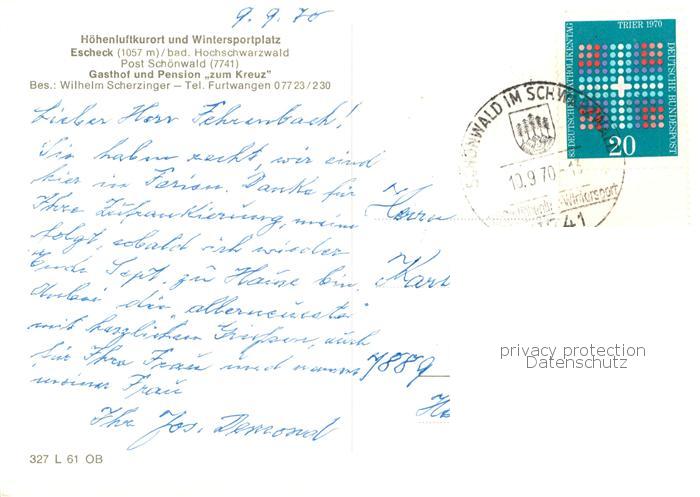 9.9.70
Höhenluftkurort und Wintersportplatz
Escheck (1057 m)/bad. Hochschwarzwald
Post Schönwald (7741)
Gasthof und Pension „zum Kreuz"
Bes.: Wilhelm Scherzinger — Tel. Furtwangen 07723/230
Lieber Herr Fehrenbach!
Sie haben recht, wir sind
hier in Ferien. Danke für
Ihre Zufrankierung, meine
folgt, sobald ich wieder
Ende Sept. zu Hause bin.
Anbei die „allerneueste"
mit herzlichen Grüßen, auch
für Ihre Frau und
meiner Frau
Ihr Jos.
327 L 61 OB
83. DEUTSCHER KATHOLIKENTAG
TRIER 1970
DEUTSCHE BUNDESPOST
20
SCHÖNWALD IM SCHW
10.9.70
Wintersport
7741
Herrn
Karl
7889
privacy protection
Datenschutz